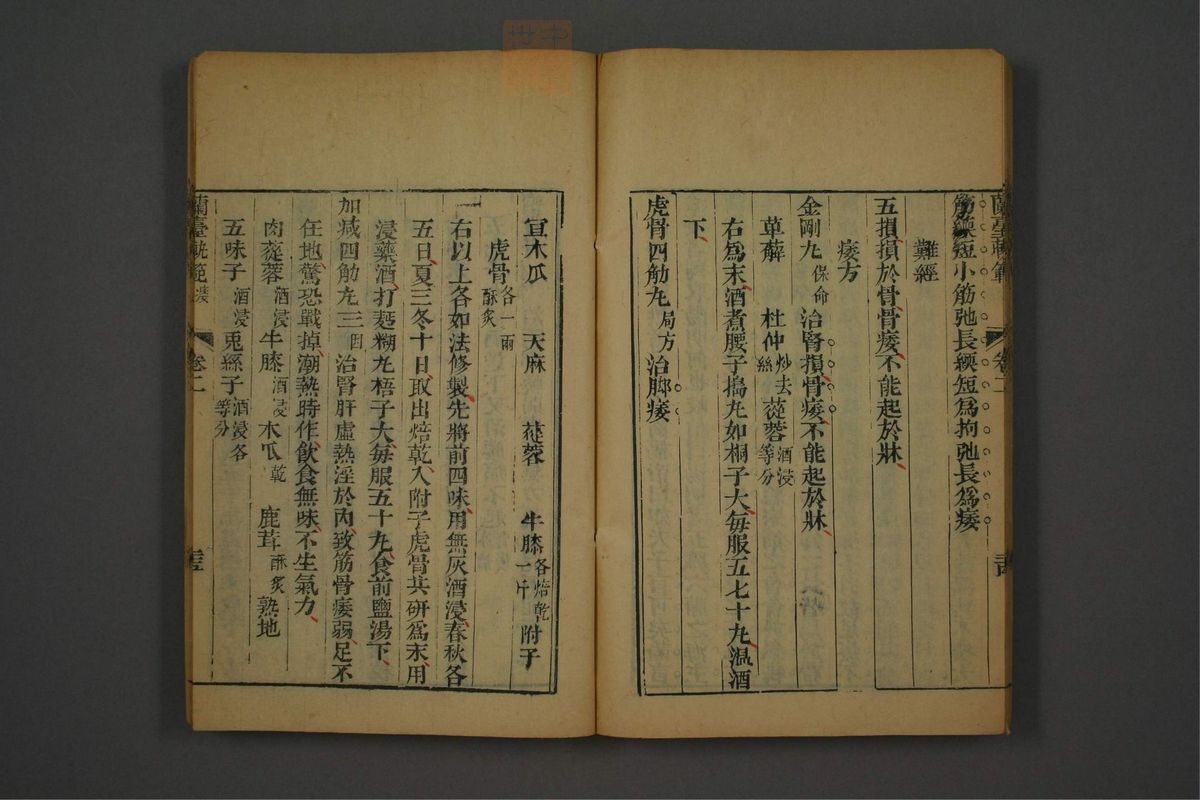 筋緛短小筋弛長緛短爲拘弛長爲痿
難經
五損損於骨骨痿不能起於牀
痿方
金剛丸保命治腎損骨痿不能起於牀
萆薢 杜仲炒去絲 蓯蓉酒浸等分
右爲末酒煮腰子搗丸如桐子大每服五七十丸溫酒
下
虎骨四觔丸局方治脚痿
蘭臺軌範 卷二
宣木瓜 天麻 蓯蓉 牛膝各焙乾一斤 附子
虎骨各一兩酥炙
右以上各如法修製先將前四味用無灰酒浸春秋各
五日夏三冬十日取出焙乾入附子虎骨共研爲末用
浸藥酒打麪糊丸梧子大每服五十丸食前鹽湯下
加减四觔丸三因治腎肝虛熱淫於内致筋骨痿弱足不
任地驚恐戰掉潮熱時作飲食無味不生氣力
肉蓯蓉酒浸 牛膝酒浸 木瓜乾 鹿茸酥炙 熟地
五味子酒浸 兎絲子酒浸各等分
蘭臺軌範 痿 卷二